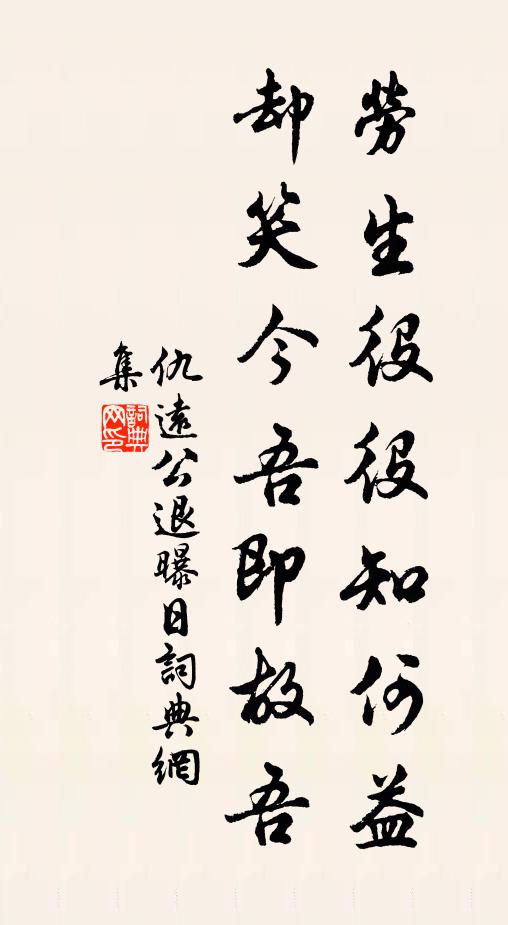 勞生役役知何益
却笑今吾即故吾
仇遠公退曝日詞典網
集
詞典網印